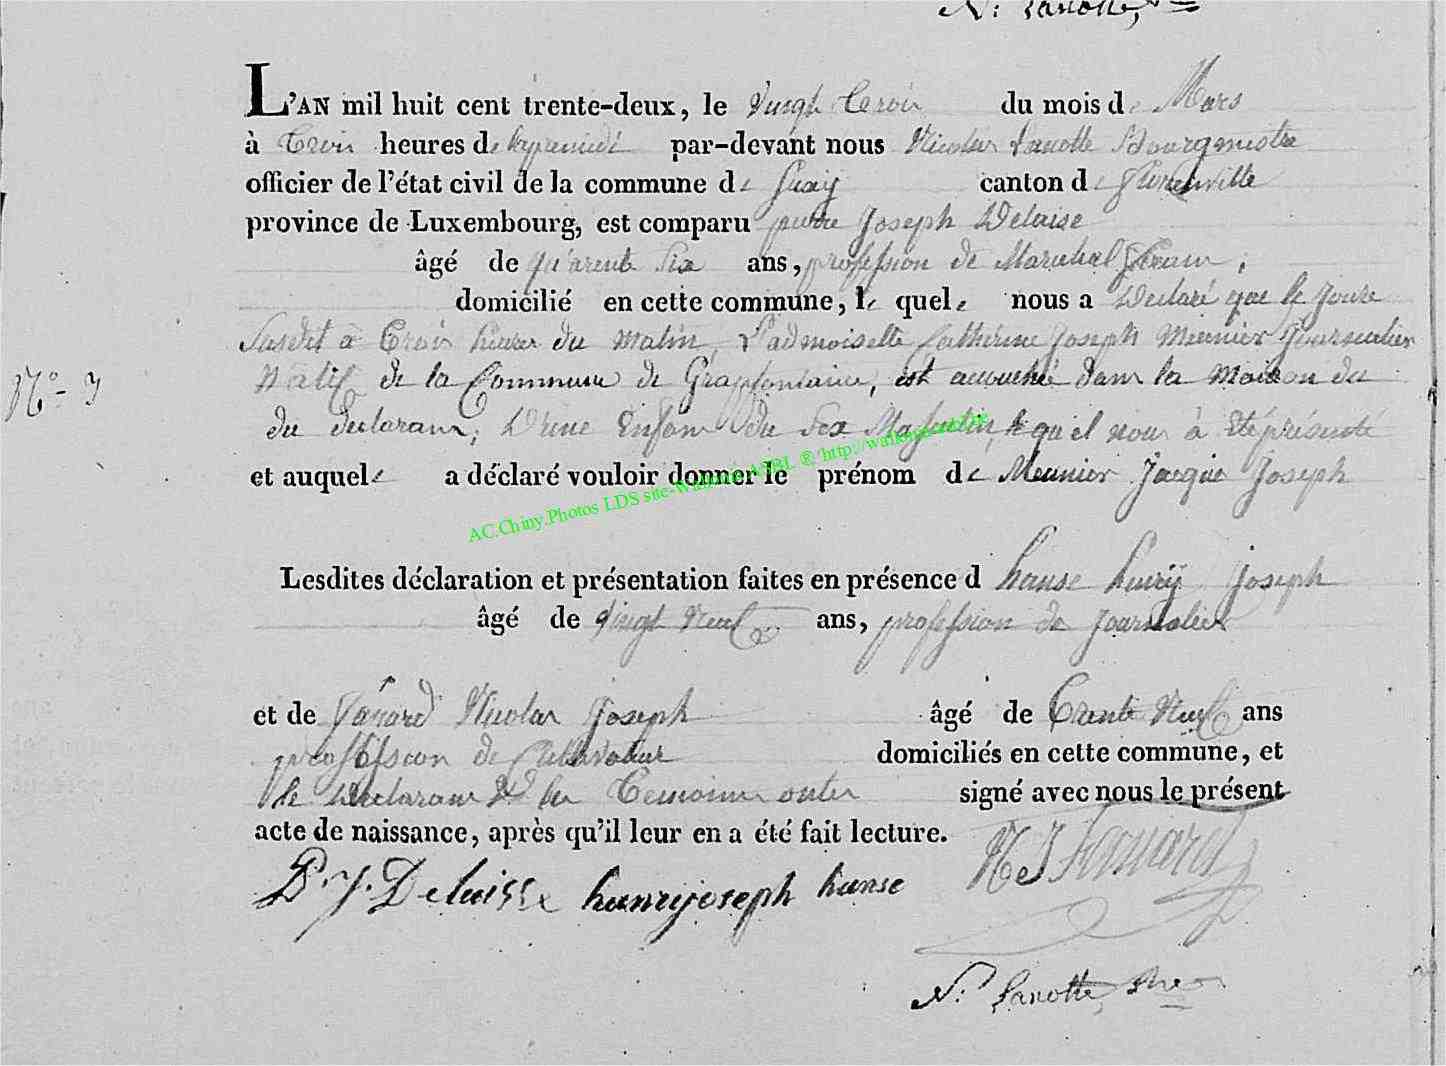 N. Lanotte,
L'AN mil huit cent trente-deux, le Vingt Trois du mois de Mars
à Trois heures de laypremidi par-devant nous Nicolas Lanotte Bourgmestre
officier de l'état civil de la commune de Suxy canton de Florenville
province de Luxembourg, est comparu pierre Joseph Delaisse
âgé de quarente Six ans, profession de Marechal feran,
domicilié en cette commune, le quel nous a Declaré que le joure
Susdit à Trois heures du matin, Ladmoiselle Catherine Joseph Meunier Journalier
Natif de la Commune de Grapfontaine, est accouché dans la maison du
N° 7
du declarant, D'une Enfant du Sex Masculin, le qu'el nous à été présenté
et auquel a déclaré vouloir donner le prénom de Meunier Jacque Joseph
AC.Chiny.Photos LDS site-Wallonie ASBL ® http://
Lesdites déclaration et présentation faites en présence d hanse henrÿ Joseph
âgé de vingt Neuf ans, profession de journalier
et de Fanard Nicolas Joseph âgé de Trente Neuf ans
profession de Cultivateur domiciliés en cette commune, et
le Declarant & les Temoins onts signé avec nous le présent
acte de naissance, après qu'il leur en a été fait lecture.
P. J. Delaisse henryjoseph hanse N J Fanard
N. Lanotte,